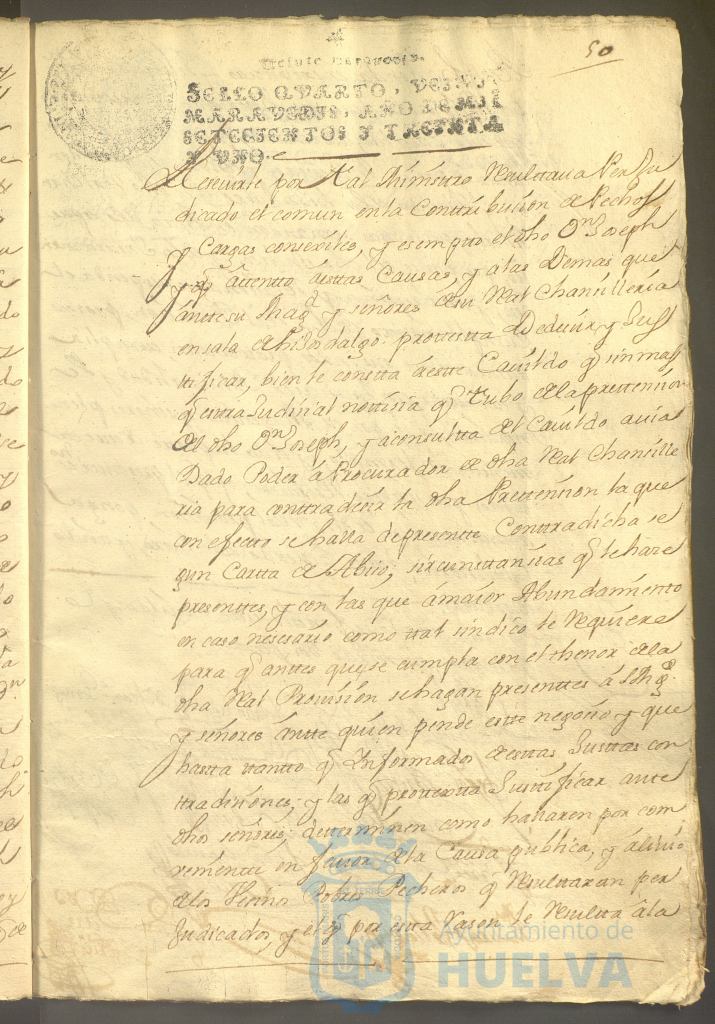 50
Veinte maravedis.
SELLO QVARTO, VEINTE
MARAVEDIS, AÑO DE MIL
SETECIENTOS Y TREINTA
Y VNO.
por tal Ministro Resultava Perju
dicado el comun en la Conttribuzion de Pechos
y Cargas consexiles, y esemptto el dho Dn Joseph
y qe attentto desttas Causas, y a las Demas que
antte su Magd y señores de su Ral Chansilleria
en sala de hijosdalgo protestta Deducir y Jus
ttificar, bien le constta a estte Cavildo qe sin mas
qe extra Judicial nottisia qe tubo de la prettension
del dho Dn Joseph, y a consultta del Cavildo avia
Dado Poder a Procurador de dha Ral Chansille
ria para conttradesir la dha Prettension la que
con efecto se halla de presentte Conttradicha se
gun Cartta de Abiso; sircunsttansias qe le haze
presenttes, y con las que a maior Abundamiento
en caso nesesario como ttal sindico le Requiere
para qe anttes que se cumpla con el thenor de la
dha Ral Provision se hagan presenttes a S Magd
y señores antte quien pende estte negosio y que
hasta ttantto qe Informados desttas Justtas con
ttradiciones, y las qe protextta Justtificar antte
dhos señores, detterminen como hallaren por com
benientte en favor de la Causa publica, y alivio
de los Vezinos Pobres Pecheros qe Resulttaran per
Judicados, y el qe por estta Rason le Resultta a la
Ayuntamiento de
HUELVA